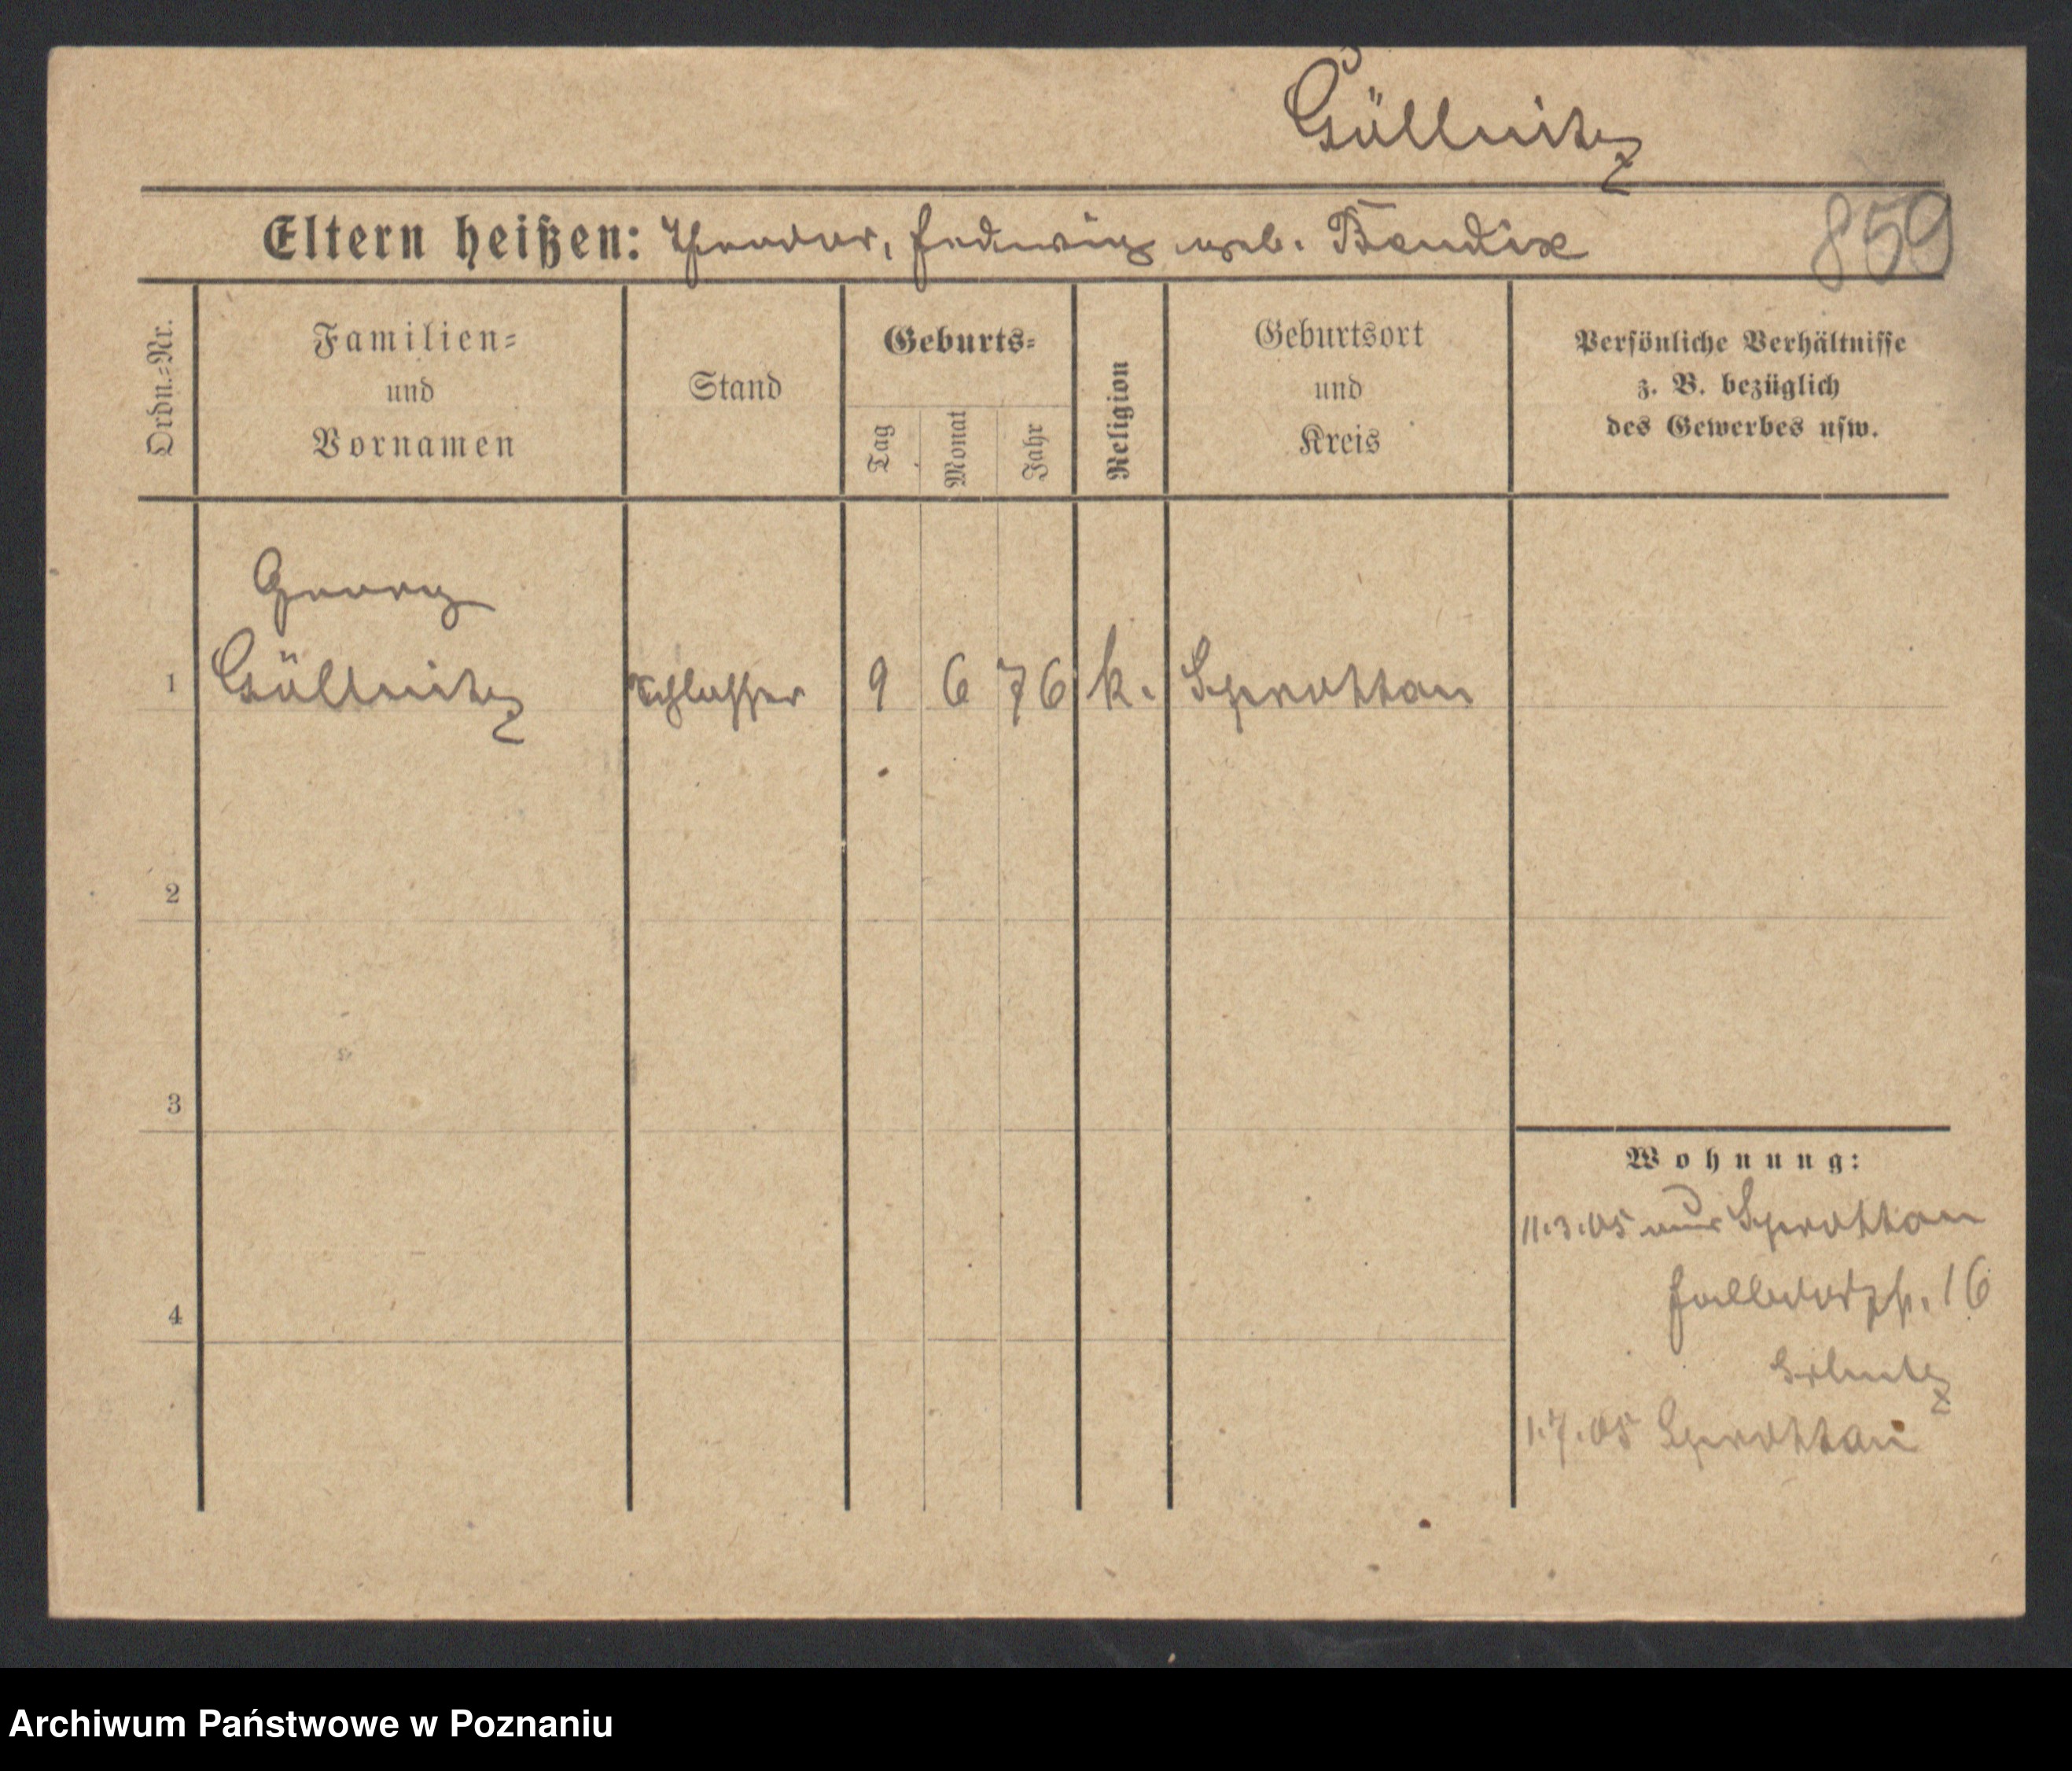 Göllnitz
Eltern heißen: Theodor, Hedwig geb. Bendix
859
Ordn.-Nr.
Familien-
und
Vornamen
Stand
Geburts-
Tag
Monat
Jahr
Religion
Geburtsort
und
Kreis
Persönliche Verhältnisse
z. B. bezüglich
des Gewerbes usw.
Georg
1 Göllnitz Schlosser 9 6 76 k. Sprottau
2
3
4
Wohnung:
11.3.05 aus Sprottau
16
1.7.05 Sprottau
Archiwum Państwowe w Poznaniu